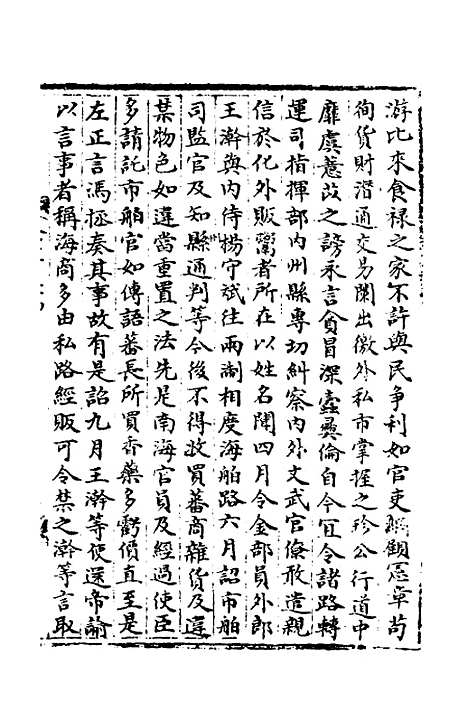 游比來食祿之家不許與民爭利如官吏罔顧憲章苟
徇貨財潛通交易闌出徼外私市掌握之珍公行道中
靡虞薏苡之謗永言貪冒深蠹彞倫自今冝令諸路轉
運司指揮部内州縣專切糾察内外文武官僚敢遣親
信於化外販鬻者所在以姓名聞四月令金部員外郎
王澣與内侍楊守斌往兩浙相度海舶路六月詔市舶
司監官及知縣通判等今後不得收買蕃商雜貨及違
禁物色如違當重置之法先是南海官員及經過使臣
多請託市舶官如傳語蕃長所買香藥多虧價直至是
左正言馮拯奏其事故有是詔九月王澣等使還帝諭
以言事者稱海商多由私路經販可令禁之澣等言取